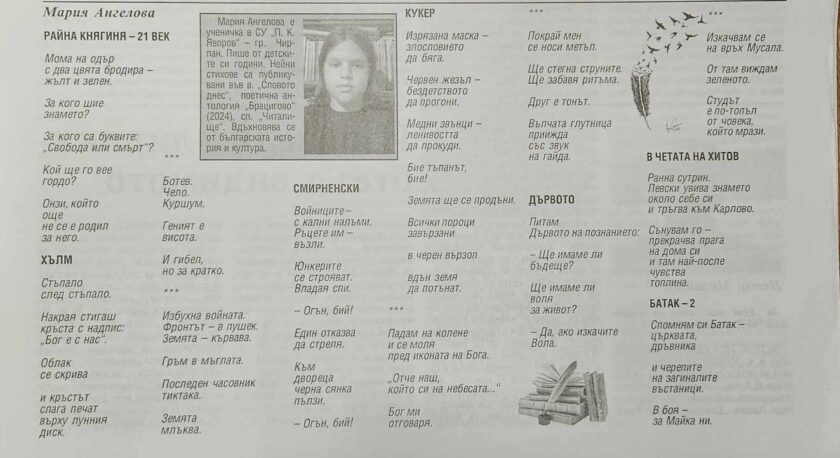 Мария Ангелова
РАЙНА КНЯГИНЯ – 21 ВЕК
Мома на одър
с два цвята бродира –
жълт и зелен.
За кого шие
знамето?
За кого са буквите:
„Свобода или смърт“?
Кой ще го вее
гордо?
Онзи, който
още
не се е родил
за него.
ХЪЛМ
Стъпало
след стъпало.
Накрая стигаш
кръста с надпис:
„Бог е с нас“.
Облак
се скрива
и кръстът
слага печат
върху лунния
диск.
Мария Ангелова е
ученичка в СУ „П. К.
Яворов“ – гр. Чир-
пан. Пише от детски-
те си години. Нейни
стихове са публику-
вани във в. „Словото
днес“, поетична ан-
тология „Брацигово“
(2024), сп. „Читали-
ще“. Вдъхновява се
от българската исто-
рия и култура.
***
Ботев.
Чело.
Куршум.
Геният е
висота.
И гибел,
но за кратко.
***
Избухна войната.
Фронтът – в пушек.
Земята – кървава.
Гръм в мъглата.
Последен часовник
тиктака.
Земята
млъква.
СМИРНЕНСКИ
Войниците –
с кални налъми.
Ръцете им –
възли.
Юнкерите
се строяват.
Владая спи.
– Огън, бий!
Един отказва
да стреля.
Към
двореца
черна сянка
пълзи.
– Огън, бий!
КУКЕР
Изрязана маска –
злословието
да бяга.
Червен жезъл –
бездетството
да прогони.
Медни звънци –
ленивостта
да прокуди.
Бие тъпанът,
бие!
Земята ще се продъни.
Всички пороци
завързани
в черен вързоп
вдън земя
да потънат.
***
Падам на колене
и се моля
пред иконата на Бога.
„Отче наш,
който си на небесата...“
Бог ми
отговаря.
***
Покрай мен
се носи метъл.
Ще стегна струните.
Ще забавя ритъма.
Друг е тонът.
Вълчата глутница
приижда
със звук
на гайда.
ДЪРВОТО
Питам
Дървото на познанието:
– Ще имаме ли
бъдеще?
Ще имаме ли
воля
за живот?
– Да, ако изкачите
Вола.
***
Изкачвам се
на връх Мусала.
От там виждам
зеленото.
Студът
е по-топъл
от човека,
който мрази.
В ЧЕТАТА НА ХИТОВ
Ранна сутрин.
Левски увива знамето
около себе си
и тръгва към Карлово.
Сънувам го –
прекрачва прага
на дома си
и там най-после
чувства
топлина.
БАТАК – 2
Спомням си Батак –
църквата,
дръвника
и черепите
на загиналите
въстаници.
В боя –
за Майка ни.